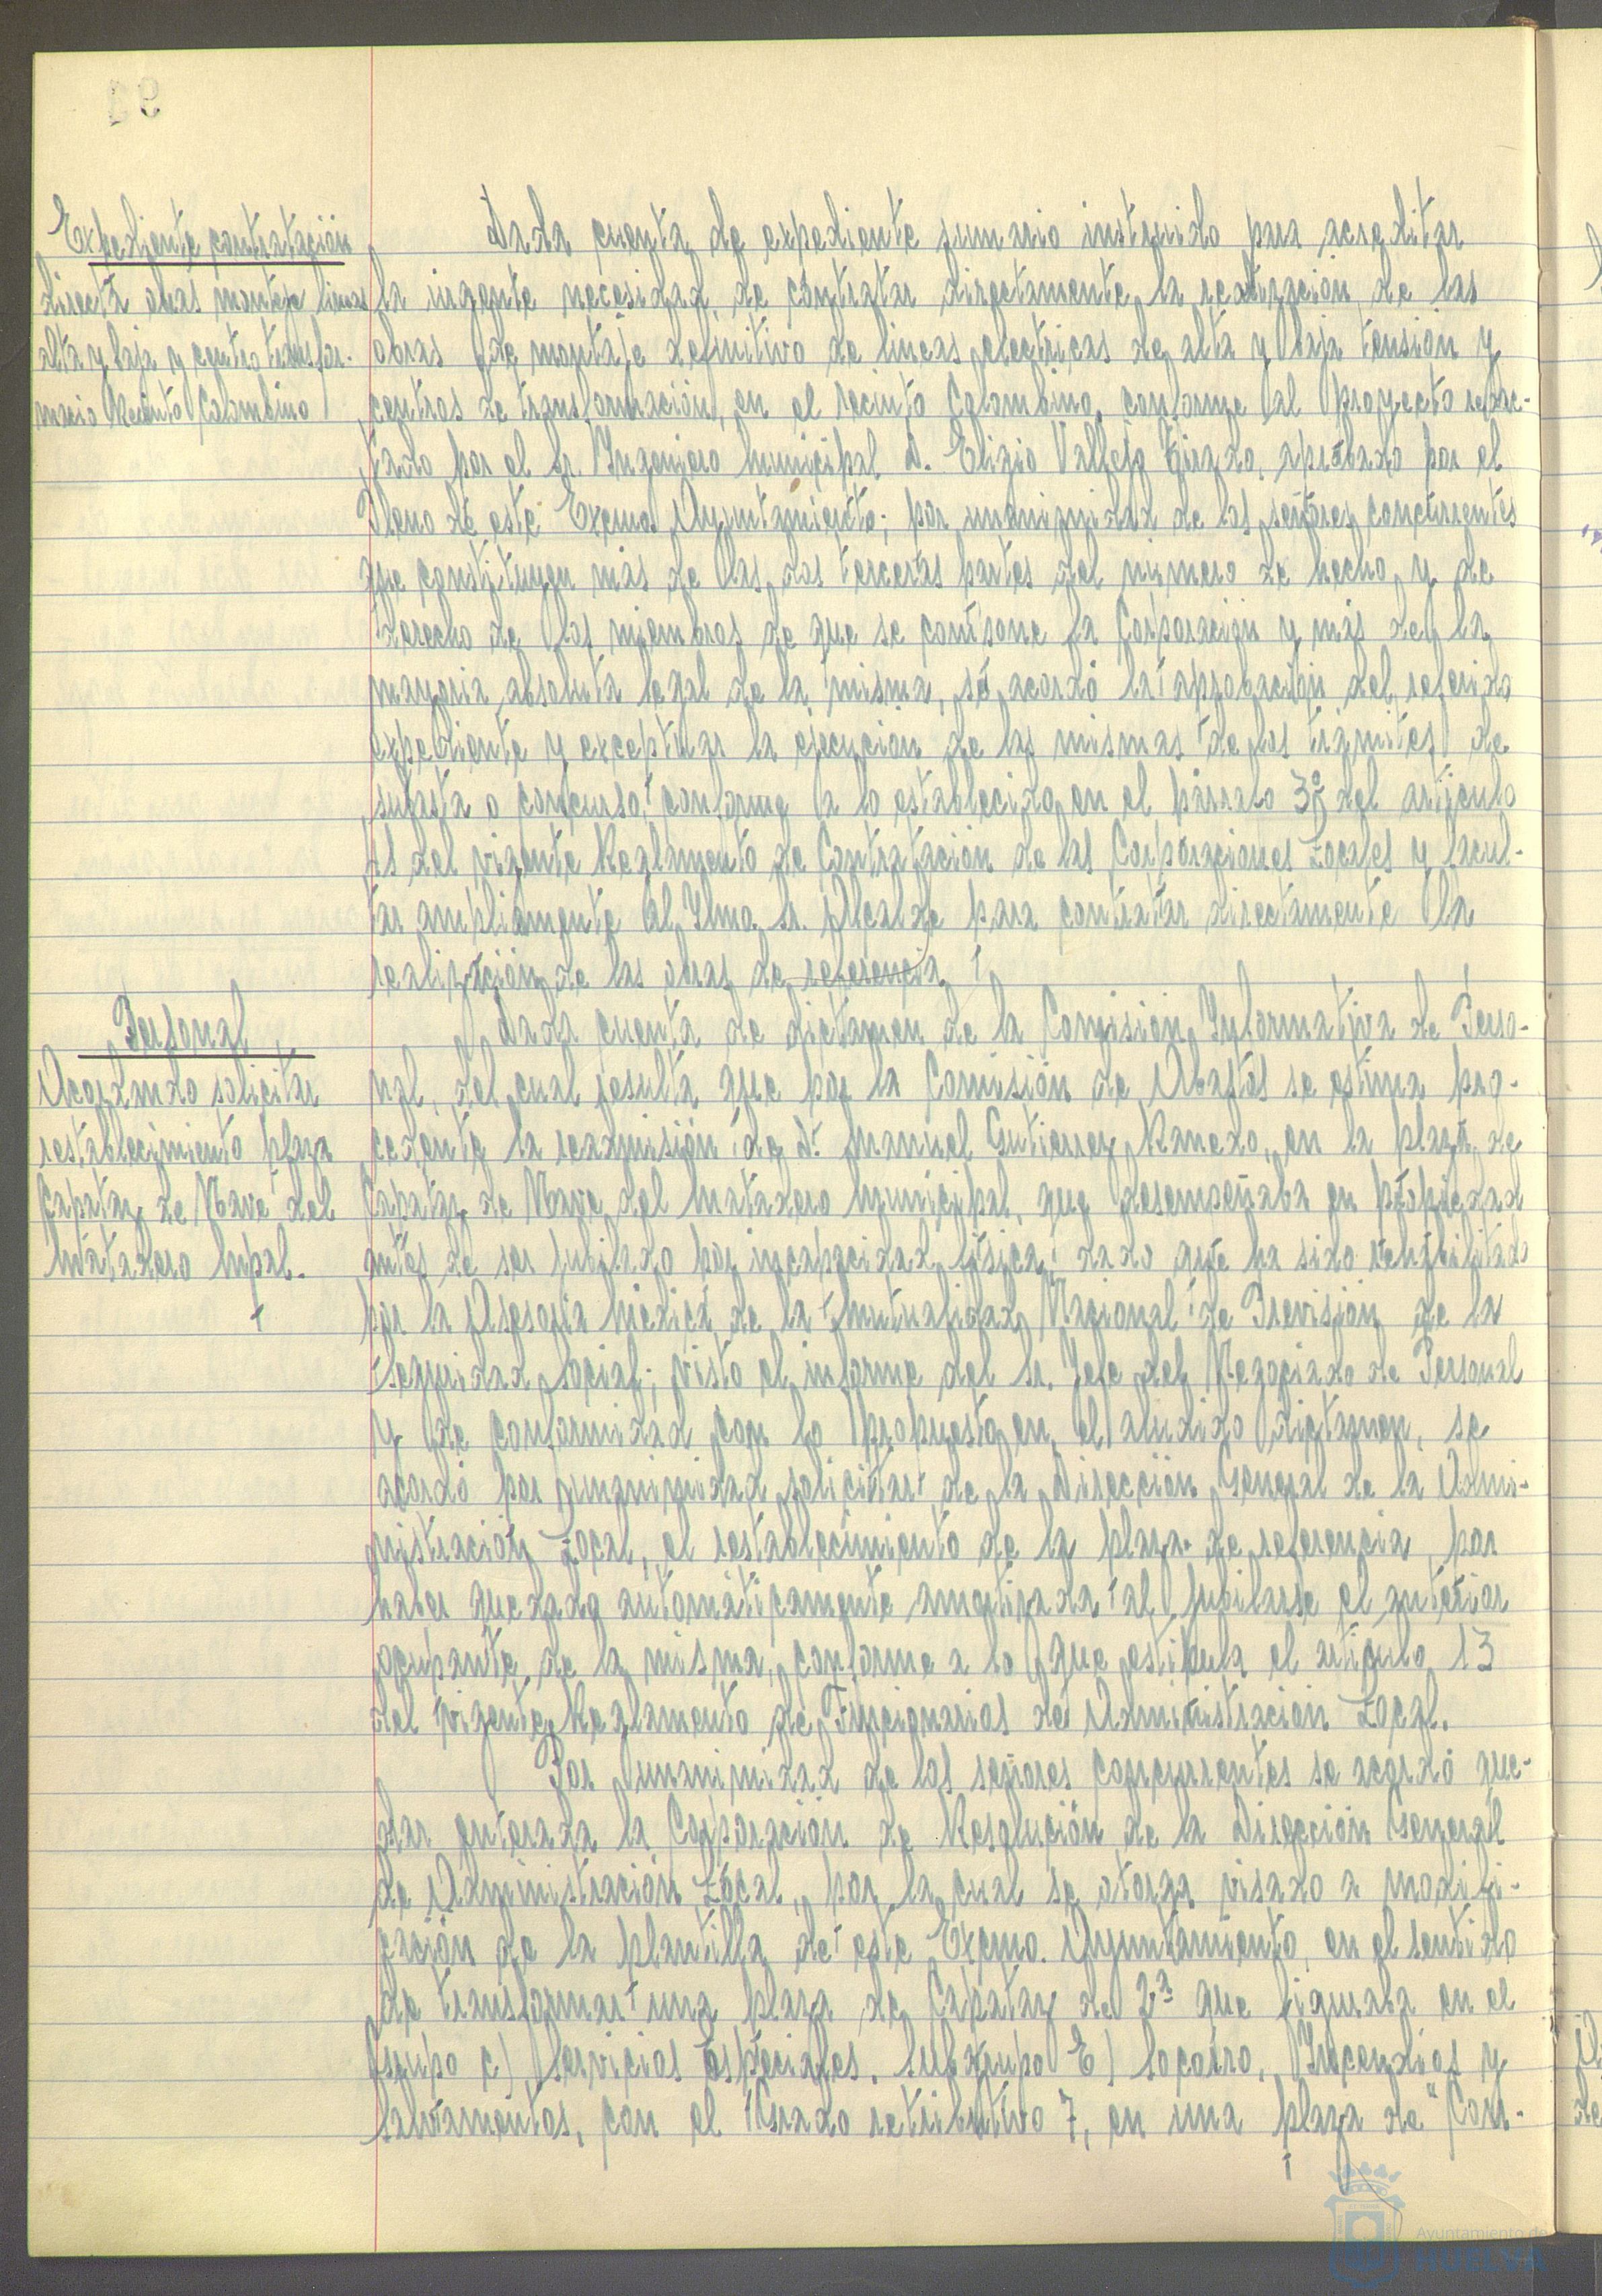 Expediente contratación
directa obras montaje lineas
alta y baja y centro transfor-
macio Recinto Colombino
Dada cuenta de expediente sumario instruido para acreditar
la urgente necesidad de contratar directamente la realización de las
obras de montaje definitivo de lineas electricas de alta y baja tensión y
centros de transformación, en el recinto Colombino, conforme al proyecto redac-
tado por el Sr. Ingeniero Municipal D. Eligio Vallejo Tirado, aprobado por el
Pleno de este Excmo. Ayuntamiento; por unanimidad de los señores concurrentes
que constituyen más de las dos terceras partes del número de hecho y de
derecho de los miembros de que se compone la Corporación y más de la
mayoria absoluta legal de la misma, se acordó la aprobación del referido
expediente y exceptuar la ejecución de las mismas de los trámites de
subasta o concurso, conforme a lo establecido en el párrafo 3º del articulo
del vigente Reglamento de Contratación de las Corporaciones Locales y facul-
tar ampliamente al Ylmo. Sr. Alcalde para contratar directamente la
realización de las obras de referencia.
Personal
Acordando solicitar
restablecimiento plaza
Capataz de Nave del
Matadero Mpal.
Dada cuenta de dictamen de la Comisión Informativa de Perso-
nal, del cual resulta que por la Comisión de Abastos se estima pro-
cedente la readmisión de D. Manuel Gutierrez Ranedo, en la plaza de
Capataz de Nave del Matadero Municipal, que desempeñaba en propiedad
antes de ser jubilado por incapacidad física, dado que ha sido rehabilitado
por la Asesoria Médica de la Mutualidad Nacional de Previsión de la
Seguridad Social; visto el informe del Sr. Jefe del Negociado de Personal
y de conformidad con lo propuesto en el aludido dictamen, se
acordó por unanimidad solicitar de la Dirección General de la Admi-
nistración Local, el restablecimiento de la plaza de referencia, por
haber quedado automáticamente amortizada al jubilarse el anterior
ocupante de la misma, conforme a lo que estipula el articulo 13
del vigente Reglamento de Funcionarios de Administración Local.
Por unanimidad de los señores concurrentes se acordó que-
dar enterada la Corporación de Resolución de la Dirección General
de Administración Local, por la cual se otorga visado a modifi-
cación de la plantilla de este Excmo. Ayuntamiento, en el sentido
de transformar una plaza de Capataz de 2ª que figuraba en el
Grupo C) Servicios Especiales, Subgrupo E) Socorro, Incendios y
Salvamentos, con el Grado retributivo 7, en una plaza de "Con-
Ayuntamiento de
HUELVA